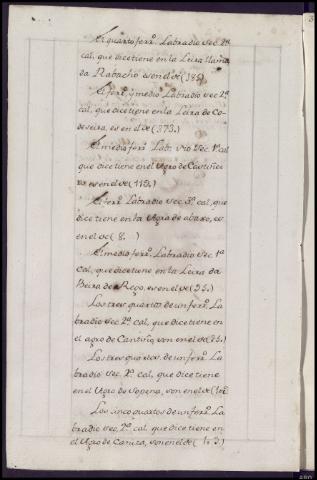 El quarto ferr.º Labradio Sec. 2ª
cal. que dice tiene en la Leira llama
da Rabacho es en el de (185)
El ferr.º y medio Labradio sec. 2ª
cal. que dice tiene en la Leira de Co-
deseira, es en el de (373.)
El medio ferr.º Lab. Sec. 1ª cal
que dice tiene en el Agro de Castiñei
es en el de (113.)
El ferr.º Labradio sec. 3ª cal. que
dice tiene en la Agra de abaxo, es
en el de (8. )
El medio ferr.º Labradio sec. 1ª
cal. que dice tiene en la Leira da
Beira do Rego, es en el de (35.)
Los tres quartos de un ferr.º La
bradio sec. 2ª cal. que dice tiene en
el agro de son en el de (25.)
Los tres quartos de un ferr.º La
bradio sec. 2ª cal. que dice tiene
en el Agro de son en el de
Los cinco quartos de un ferr.º La
bradio sec. 2ª cal. que dice tiene en
el Agro de son en el de